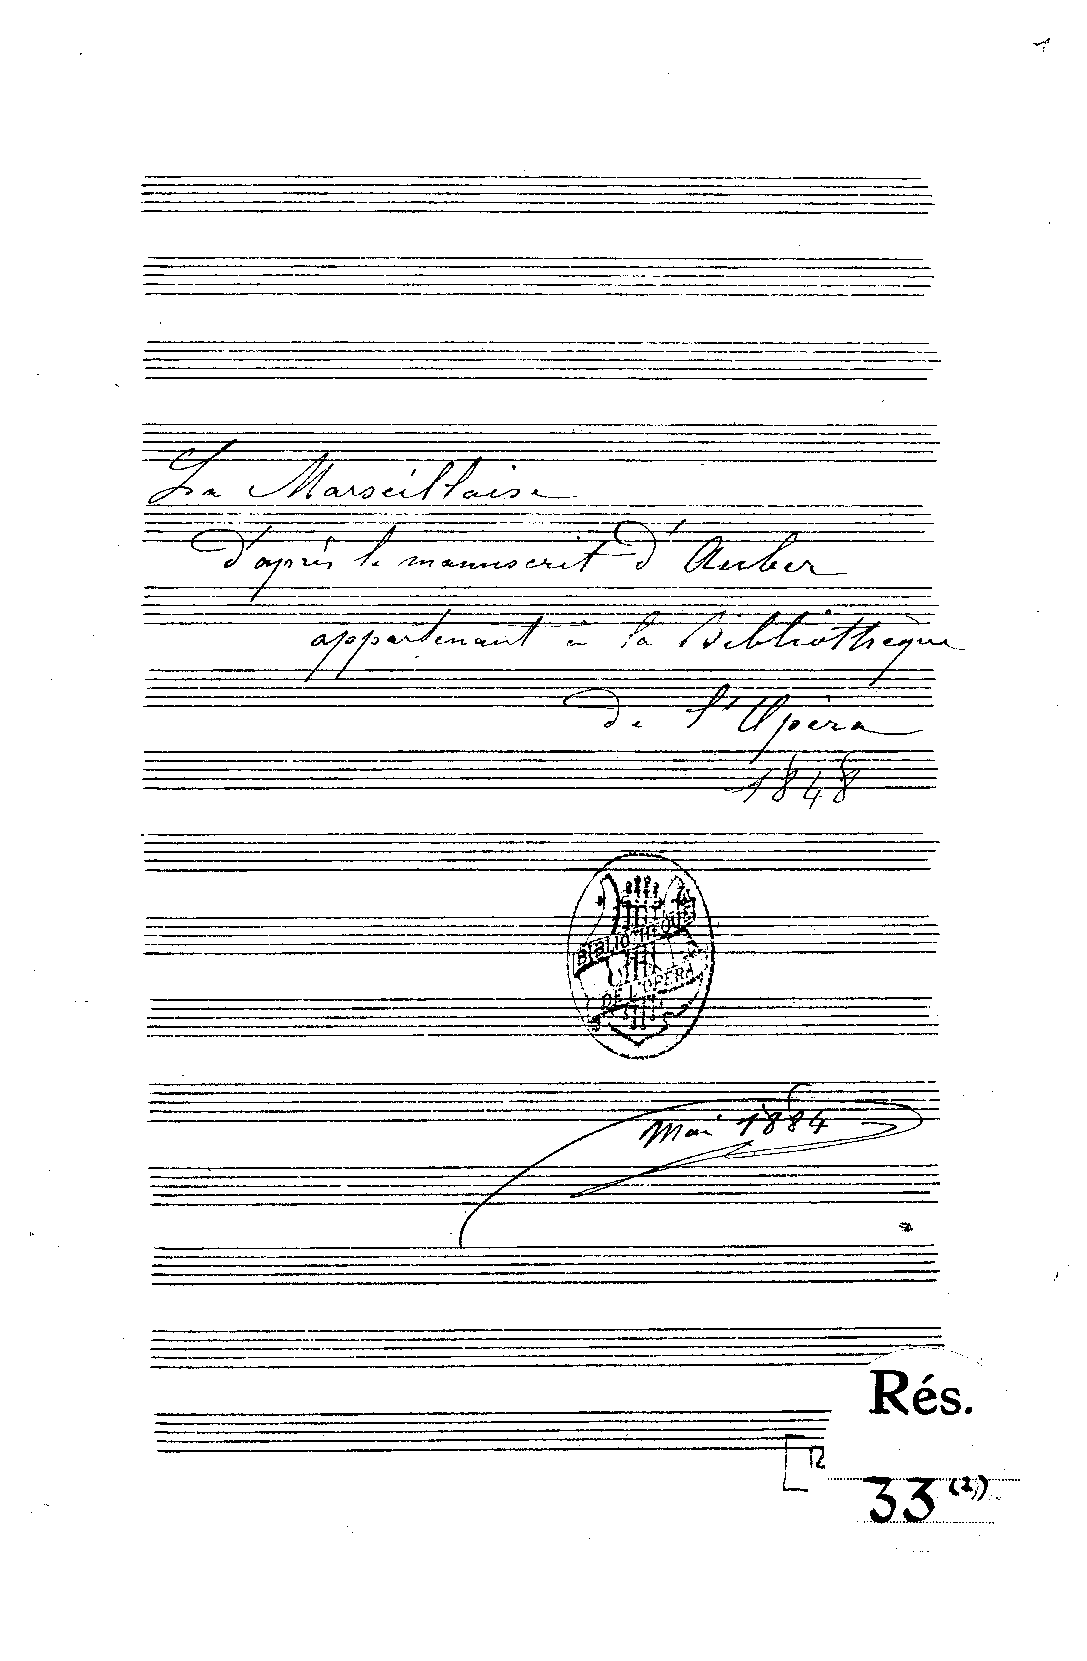 La Marseillaise
d'après le manuscrit d'Auber
appartenant à la Bibliothèque
de l'Opéra
1848
BIBLIOTHEQUE
DE L'OPERA
Mai 1884
Rés.
33